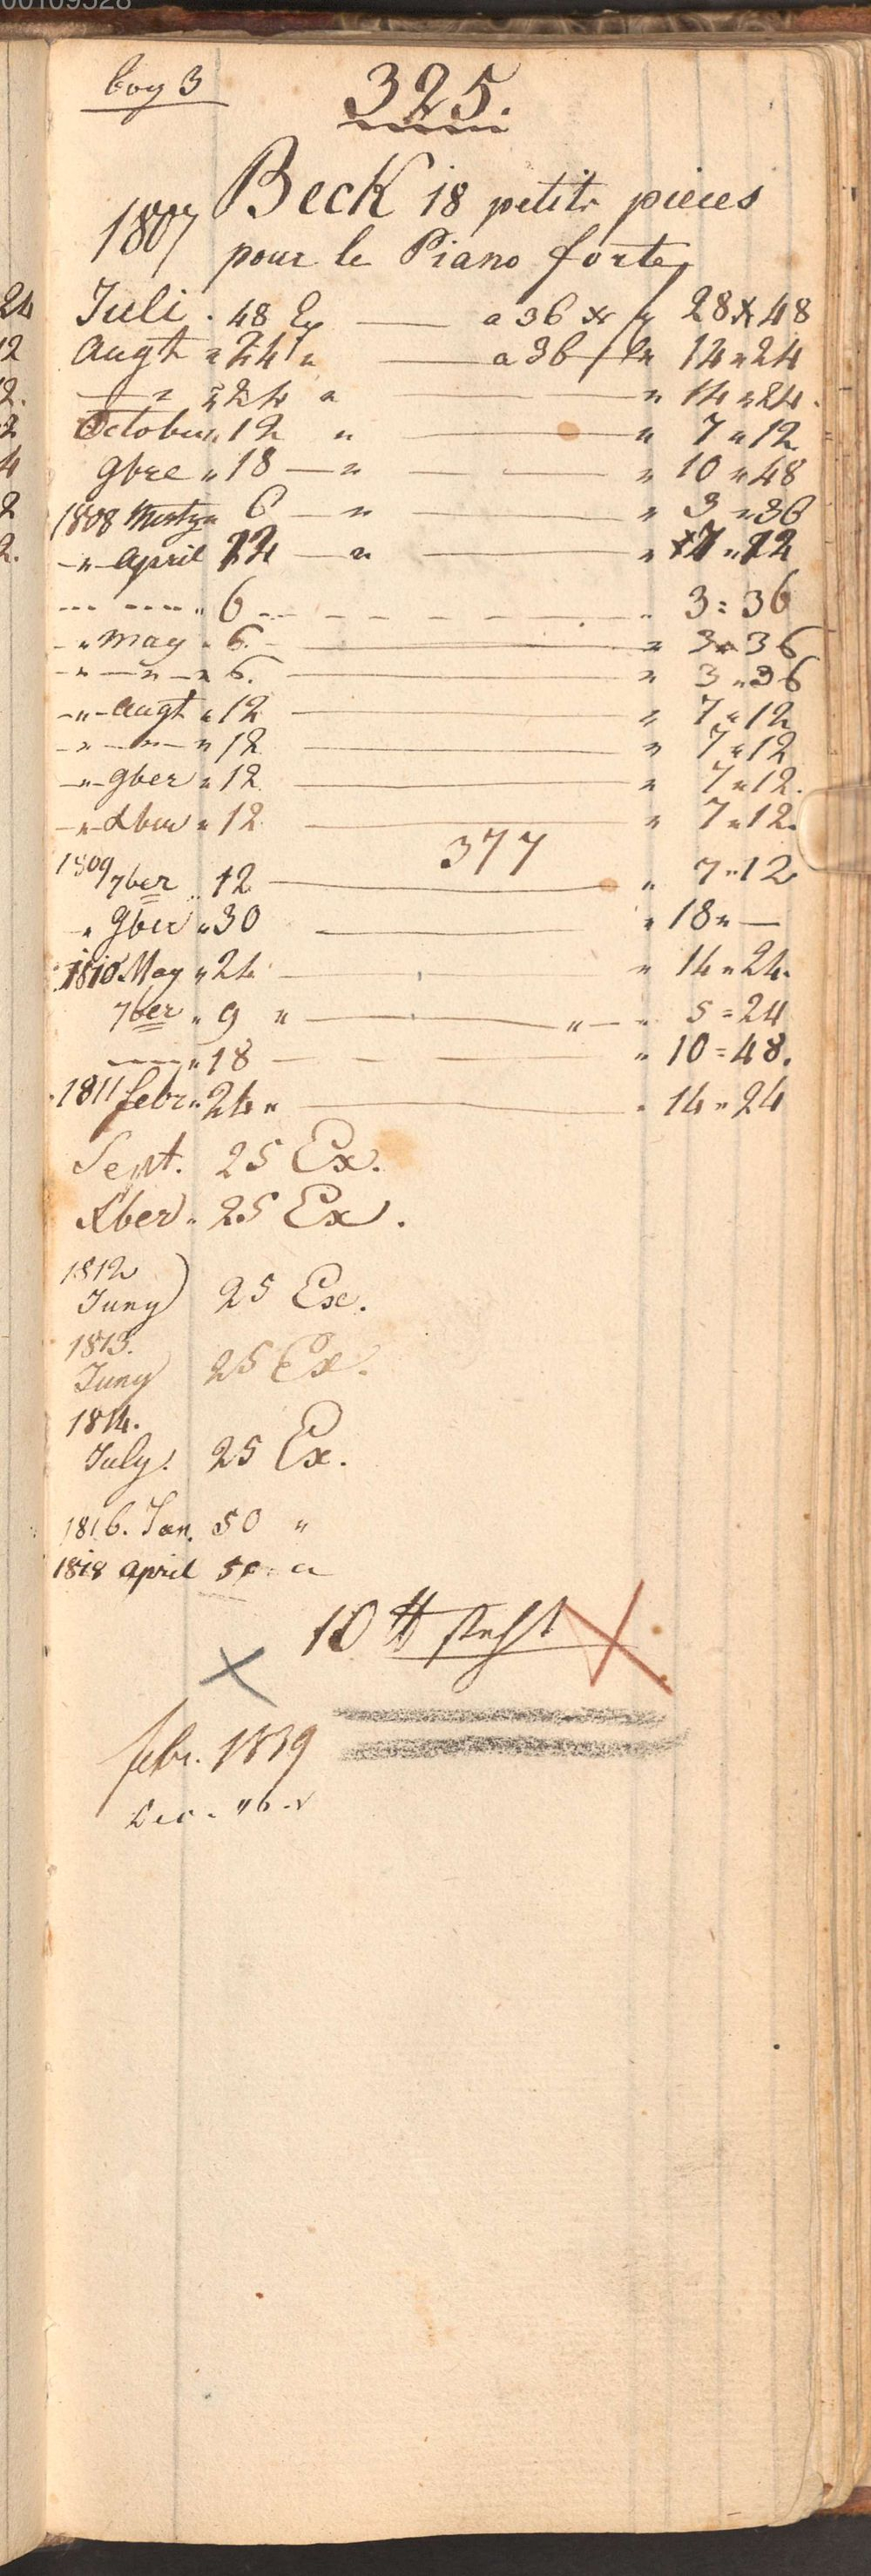 00109528
bog 3
325.
Beck 18 petits pieces
1807 pour le Piano forte
Juli . 48 Ex — a 36 xr „ 28 x 48
Augt „ 24 „ — a 36 „ 14 „ 24
— „ „ 24 „ — „ 14 „ 24.
October „ 12 „ — „ 7 „ 12
9bre „ 18 — „ — „ 10 „ 48
1808 „ 6 — „ — „ 3 „ 36
- „ - April 12 — „ — „ 7 „ 12
--- ---- „ 6 -- — „ 3 : 36
- „ May „ 6. — „ 3 „ 36
- „ — „ — „ 6. — „ 3 „ 36
- „ - Augt „ 12 — „ 7 „ 12
- „ — „ — „ 12 — „ 7 „ 12
- „ - 9ber „ 12 — „ 7 „ 12.
- „ - Xber „ 12 — „ 7 „ 12.
377
1809 7ber „ 12 — „ 7 „ 12
„ 9ber „ 30 — „ 18 „ —
1810 May „ 24 — „ 14 „ 24.
7ber „ 9 „ — „ — „ 5 = 24
— „ 18 — „ 10 = 48.
1811 febr „ 24 „ — „ 14 „ 24
Sept. 25 Ex.
Xber „ 25 Ex.
1812
Juny) 25 Ex.
1813.
Juny 25 Ex.
1814.
July. 25 Ex.
1816. Jan. 50 „
1818 April 50 „
10 # steht
febr. 1839
Dec. „ 46.